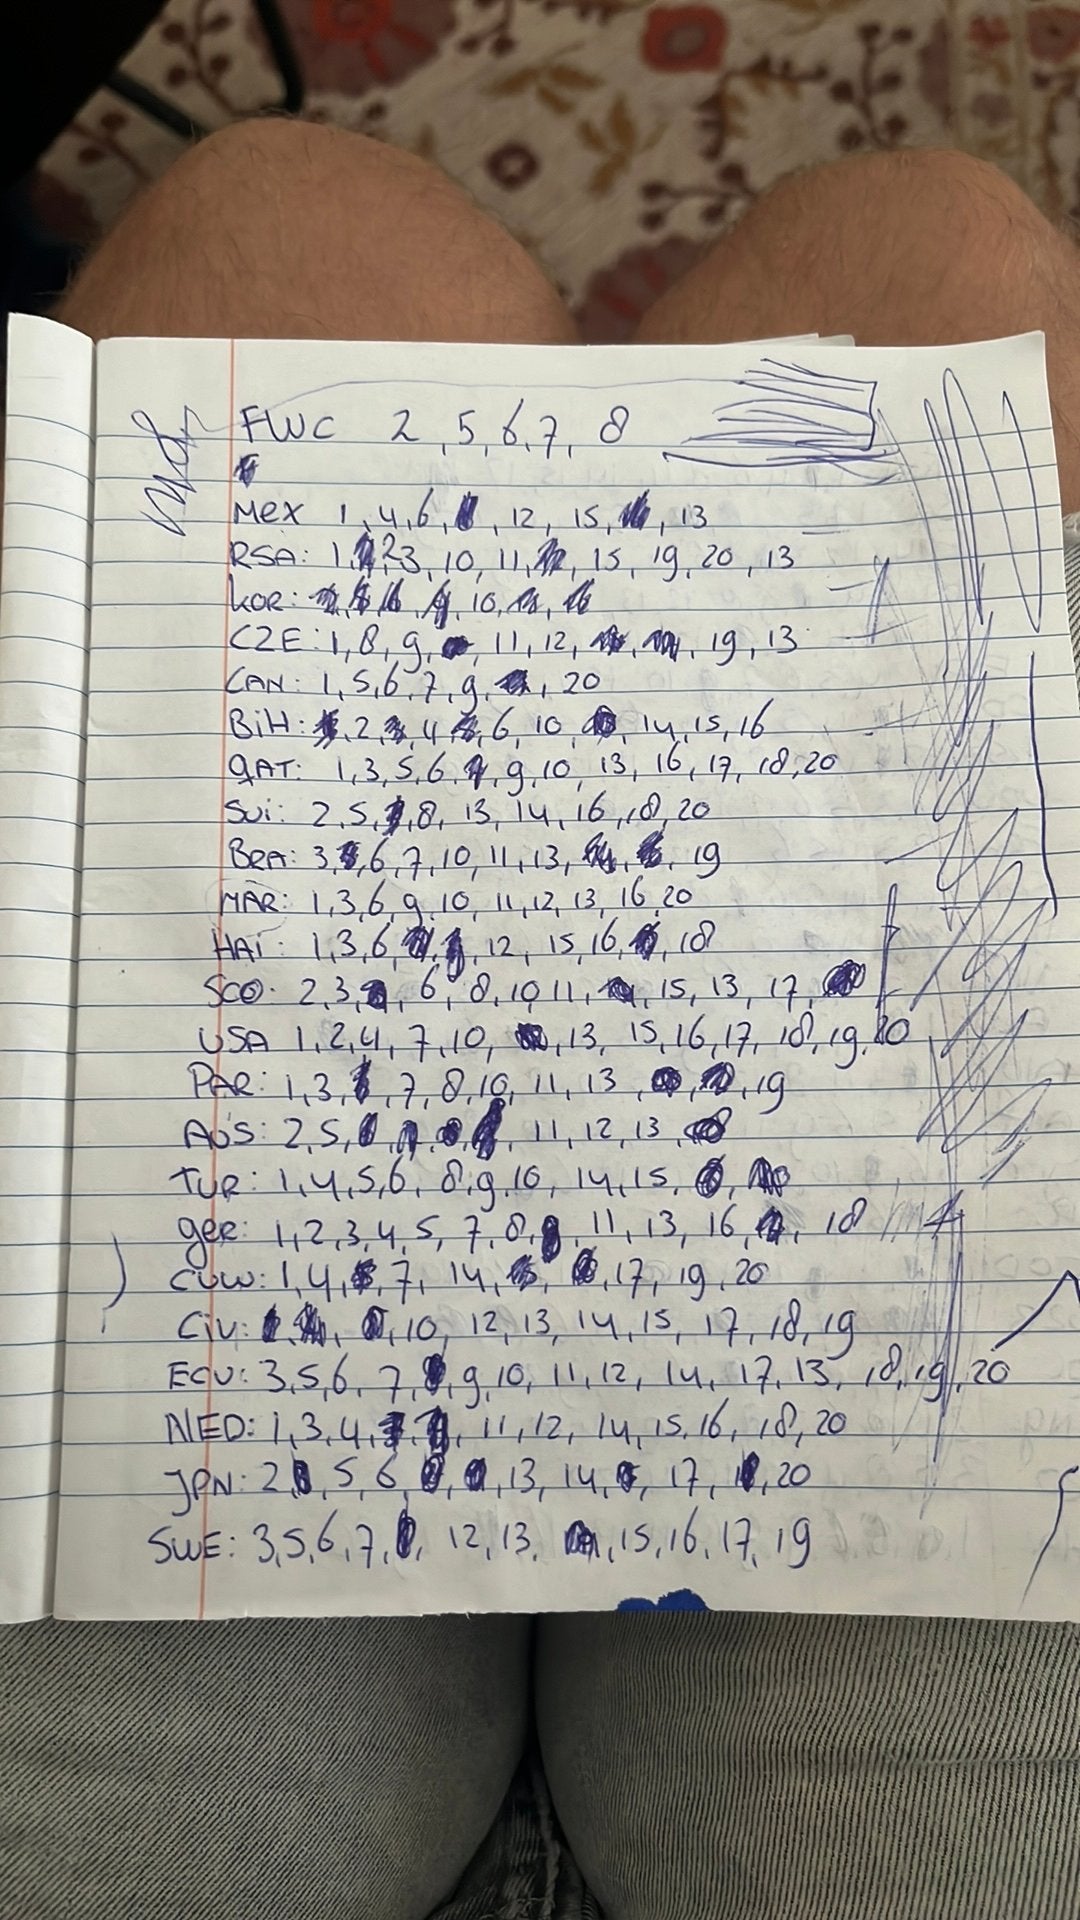 FWC 2, 5, 6, 7, 8
MEX 1, 4, 6, 12, 15, 13
RSA: 1, 2, 3, 10, 11, 15, 19, 20, 13
KOR: 10
CZE: 1, 8, 9, 11, 12, 19, 13
CAN: 1, 5, 6, 7, 9, 20
BiH: 2, 4, 6, 10, 14, 15, 16
QAT: 1, 3, 5, 6, 9, 10, 13, 16, 17, 18, 20
Sui: 2, 5, 8, 13, 14, 16, 18, 20
BRA: 3, 6, 7, 10, 11, 13, 19
MAR: 1, 3, 6, 9, 10, 11, 12, 13, 16, 20
HAi: 1, 3, 6, 12, 15, 16, 18
SCO: 2, 3, 6, 8, 10, 11, 15, 13, 17
USA 1, 2, 4, 7, 10, 13, 15, 16, 17, 18, 19, 20
PAR: 1, 3, 7, 8, 10, 11, 13, 19
AUS: 2, 5, 11, 12, 13
TUR: 1, 4, 5, 6, 8, 9, 10, 14, 15
GER: 1, 2, 3, 4, 5, 7, 8, 11, 13, 16, 18
CUW: 1, 4, 7, 14, 17, 19, 20
CiV: 10, 12, 13, 14, 15, 17, 18, 19
ECU: 3, 5, 6, 7, 9, 10, 11, 12, 14, 17, 13, 18, 19, 20
NED: 1, 3, 4, 11, 12, 14, 15, 16, 18, 20
JPN: 2, 5, 6, 13, 14, 17, 20
SWE: 3, 5, 6, 7, 12, 13, 15, 16, 17, 19